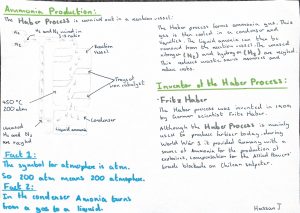 Ammonia Production:
The Haber Process is carried out in a reaction vessel:
N₂
H₂
N₂ and H₂ mixed in
1:3 ratio
Reaction
vessel
Trays of
iron catalyst
450°C
200 atm
Condenser
Unused
N₂ and H₂
are recycled
Liquid ammonia
Fact 1:
The symbol for atmosphere is atm.
So 200 atm means 200 atmosphere.
Fact 2:
In the condenser Amonia turns
from a gas to a liquid.
The Haber process forms ammonia gas. This
gas is then cooled in a condenser and
liquefies. The liquid ammonia can then be
removed from the reaction vessel. The unused
nitrogen (N₂) and hydrogen (H₂) are recycled
This reduces waste, saves resources and
reduces costs.
Inventor of the Haber Process:
Fritz Haber
The Haber process was invented in 1909
by German scientist Fritz Haber.
Although the Haber Process is mainly
used to produce fertilizer today, during
World War 1 it provided Germany with a
source of ammonia for the production of
explosives, compensation for the Allied Powers'
trade blockade on Chilean saltpeter.
Hassan J